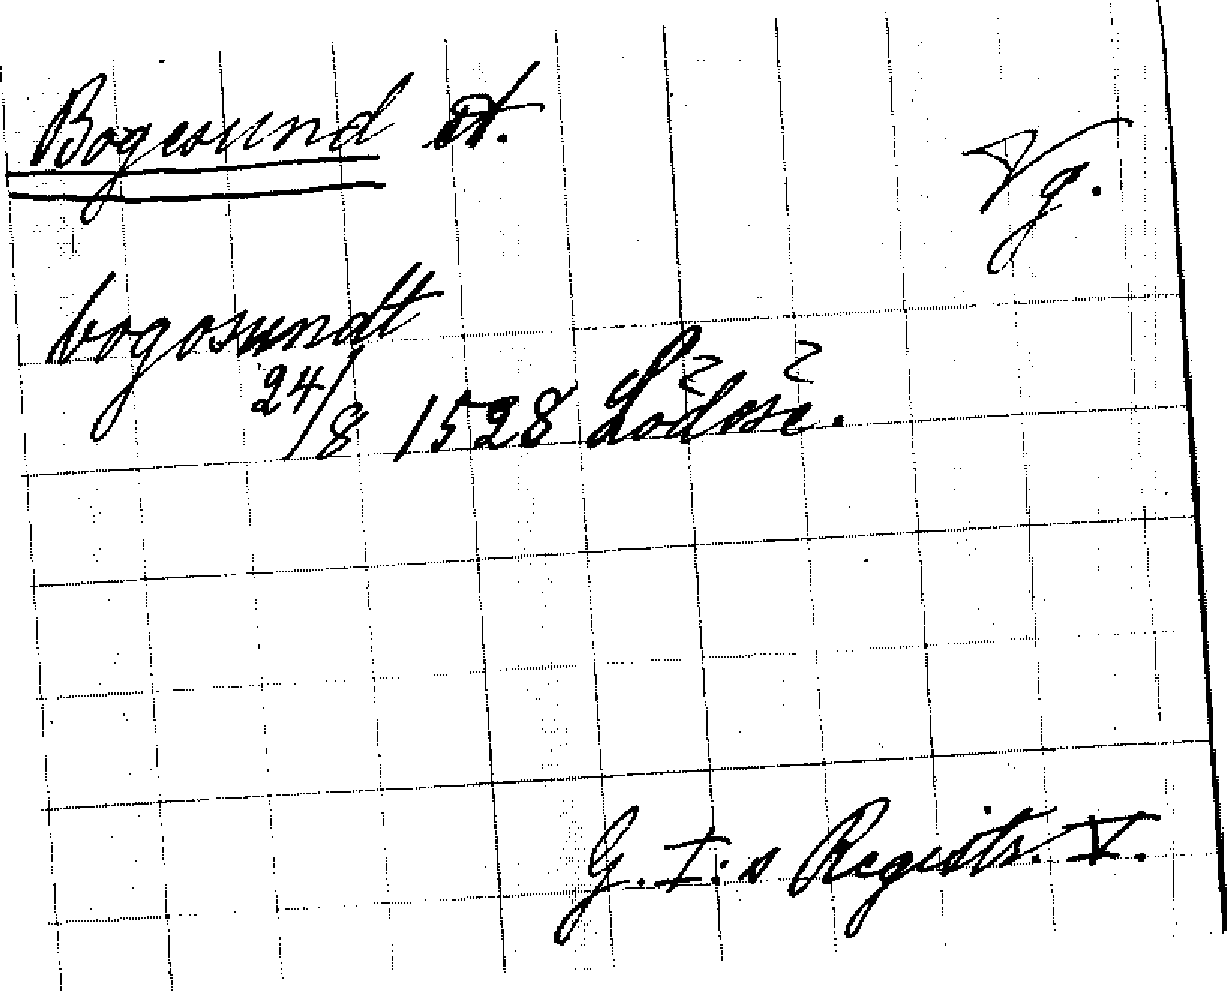 Bogesund st. Vg.
bogosundt
24/8 1528 Lödöse.
G. I:s Registr. V.